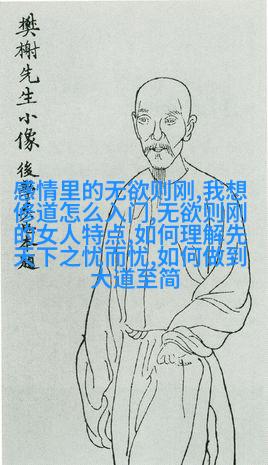 樊榭先生小像
後學
題
感情里的无欲则刚,我想
修道怎么入门,无欲则刚
的女人特点,如何理解先
天下之忧而忧,如何做到
大道至简